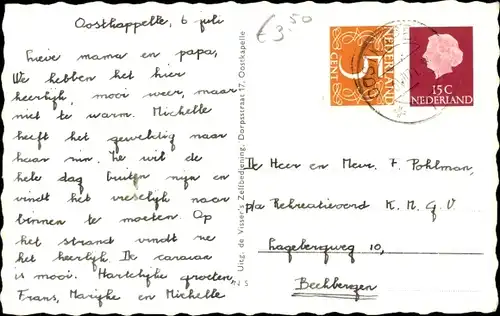 Oosthappelle, 6 juli
€3.50
Lieve mama en papa,
We hebben het hier
heerlijk, mooi weer, maar
niet te warm. Michelle
heeft het geweldig naar
haar zin. Ze wil de
hele dag buiten zijn en
vindt het vreselijk naar
binnen te moeten. Op
het strand vindt ze
het heerlijk. De caravan
is mooi. Hartelijke groeten,
Frans, Marijke en Michelle
Uitg. de Visser's Zelfbediening, Dorpsstraat 17, Oostkapelle
5
CENT
NEDERLAND
15 C
NEDERLAND
De Heer en Mevr. F. Pohlman,
p/a Recreatieoord K.M.G.V.
Lagebergweg 10,
Beekbergen